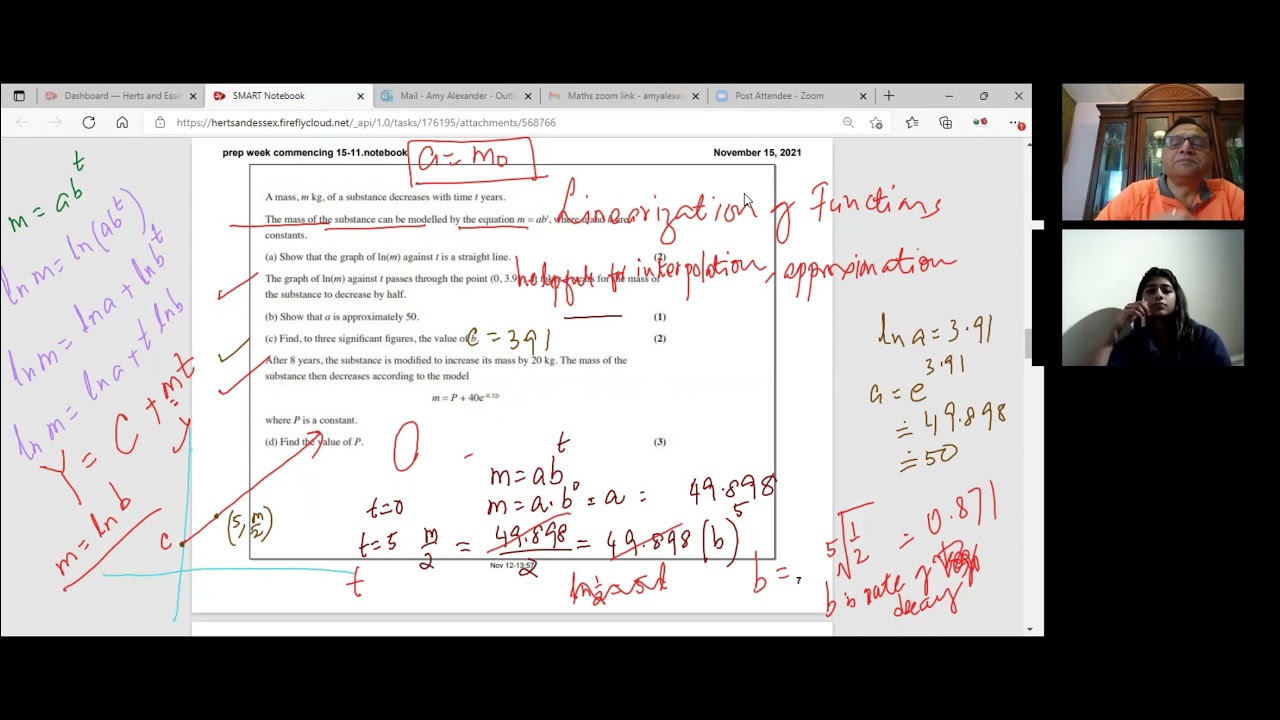 Dashboard — Herts and Esse
SMART Notebook
Mail - Amy Alexander - Outl
Maths zoom link - amyalexan
Post Attendee - Zoom
https://hertsandessex.fireflycloud.net/_api/1.0/tasks/176195/attachments/568766
prep week commencing 15-11.notebook
a = m₀
November 15, 2021
A mass, m kg, of a substance decreases with time t years.
The mass of the substance can be modelled by the equation m = abᵗ, where a and b are
constants.
Linearization of Functions
(a) Show that the graph of ln(m) against t is a straight line.
(2)
helpful for interpolation, approximation
The graph of ln(m) against t passes through the point (0, 3.9 for the mass of
the substance to decrease by half.
(b) Show that a is approximately 50.
(1)
(c) Find, to three significant figures, the value of b.
C = 3.91
(2)
After 8 years, the substance is modified to increase its mass by 20 kg. The mass of the
substance then decreases according to the model
m = P + 40e^-0.32t
where P is a constant.
(d) Find the value of P.
(3)
m = abᵗ
ln m = ln(abᵗ)
ln m = ln a + ln bᵗ
ln m = ln a + t ln b
Y = C + mt
m = ln b
y
c
(5, m/2)
t
0
m = abᵗ
t=0
m = a·b⁰ = a = 49.898
t=5 m/2 = 49.898/2 = 49.898 (b)⁵
b =
⁵√1/2 = 0.871
b is rate of
decay
ln a = 3.91
a = e^3.91
≐ 49.898
≐ 50
Nov 12-13:57
7